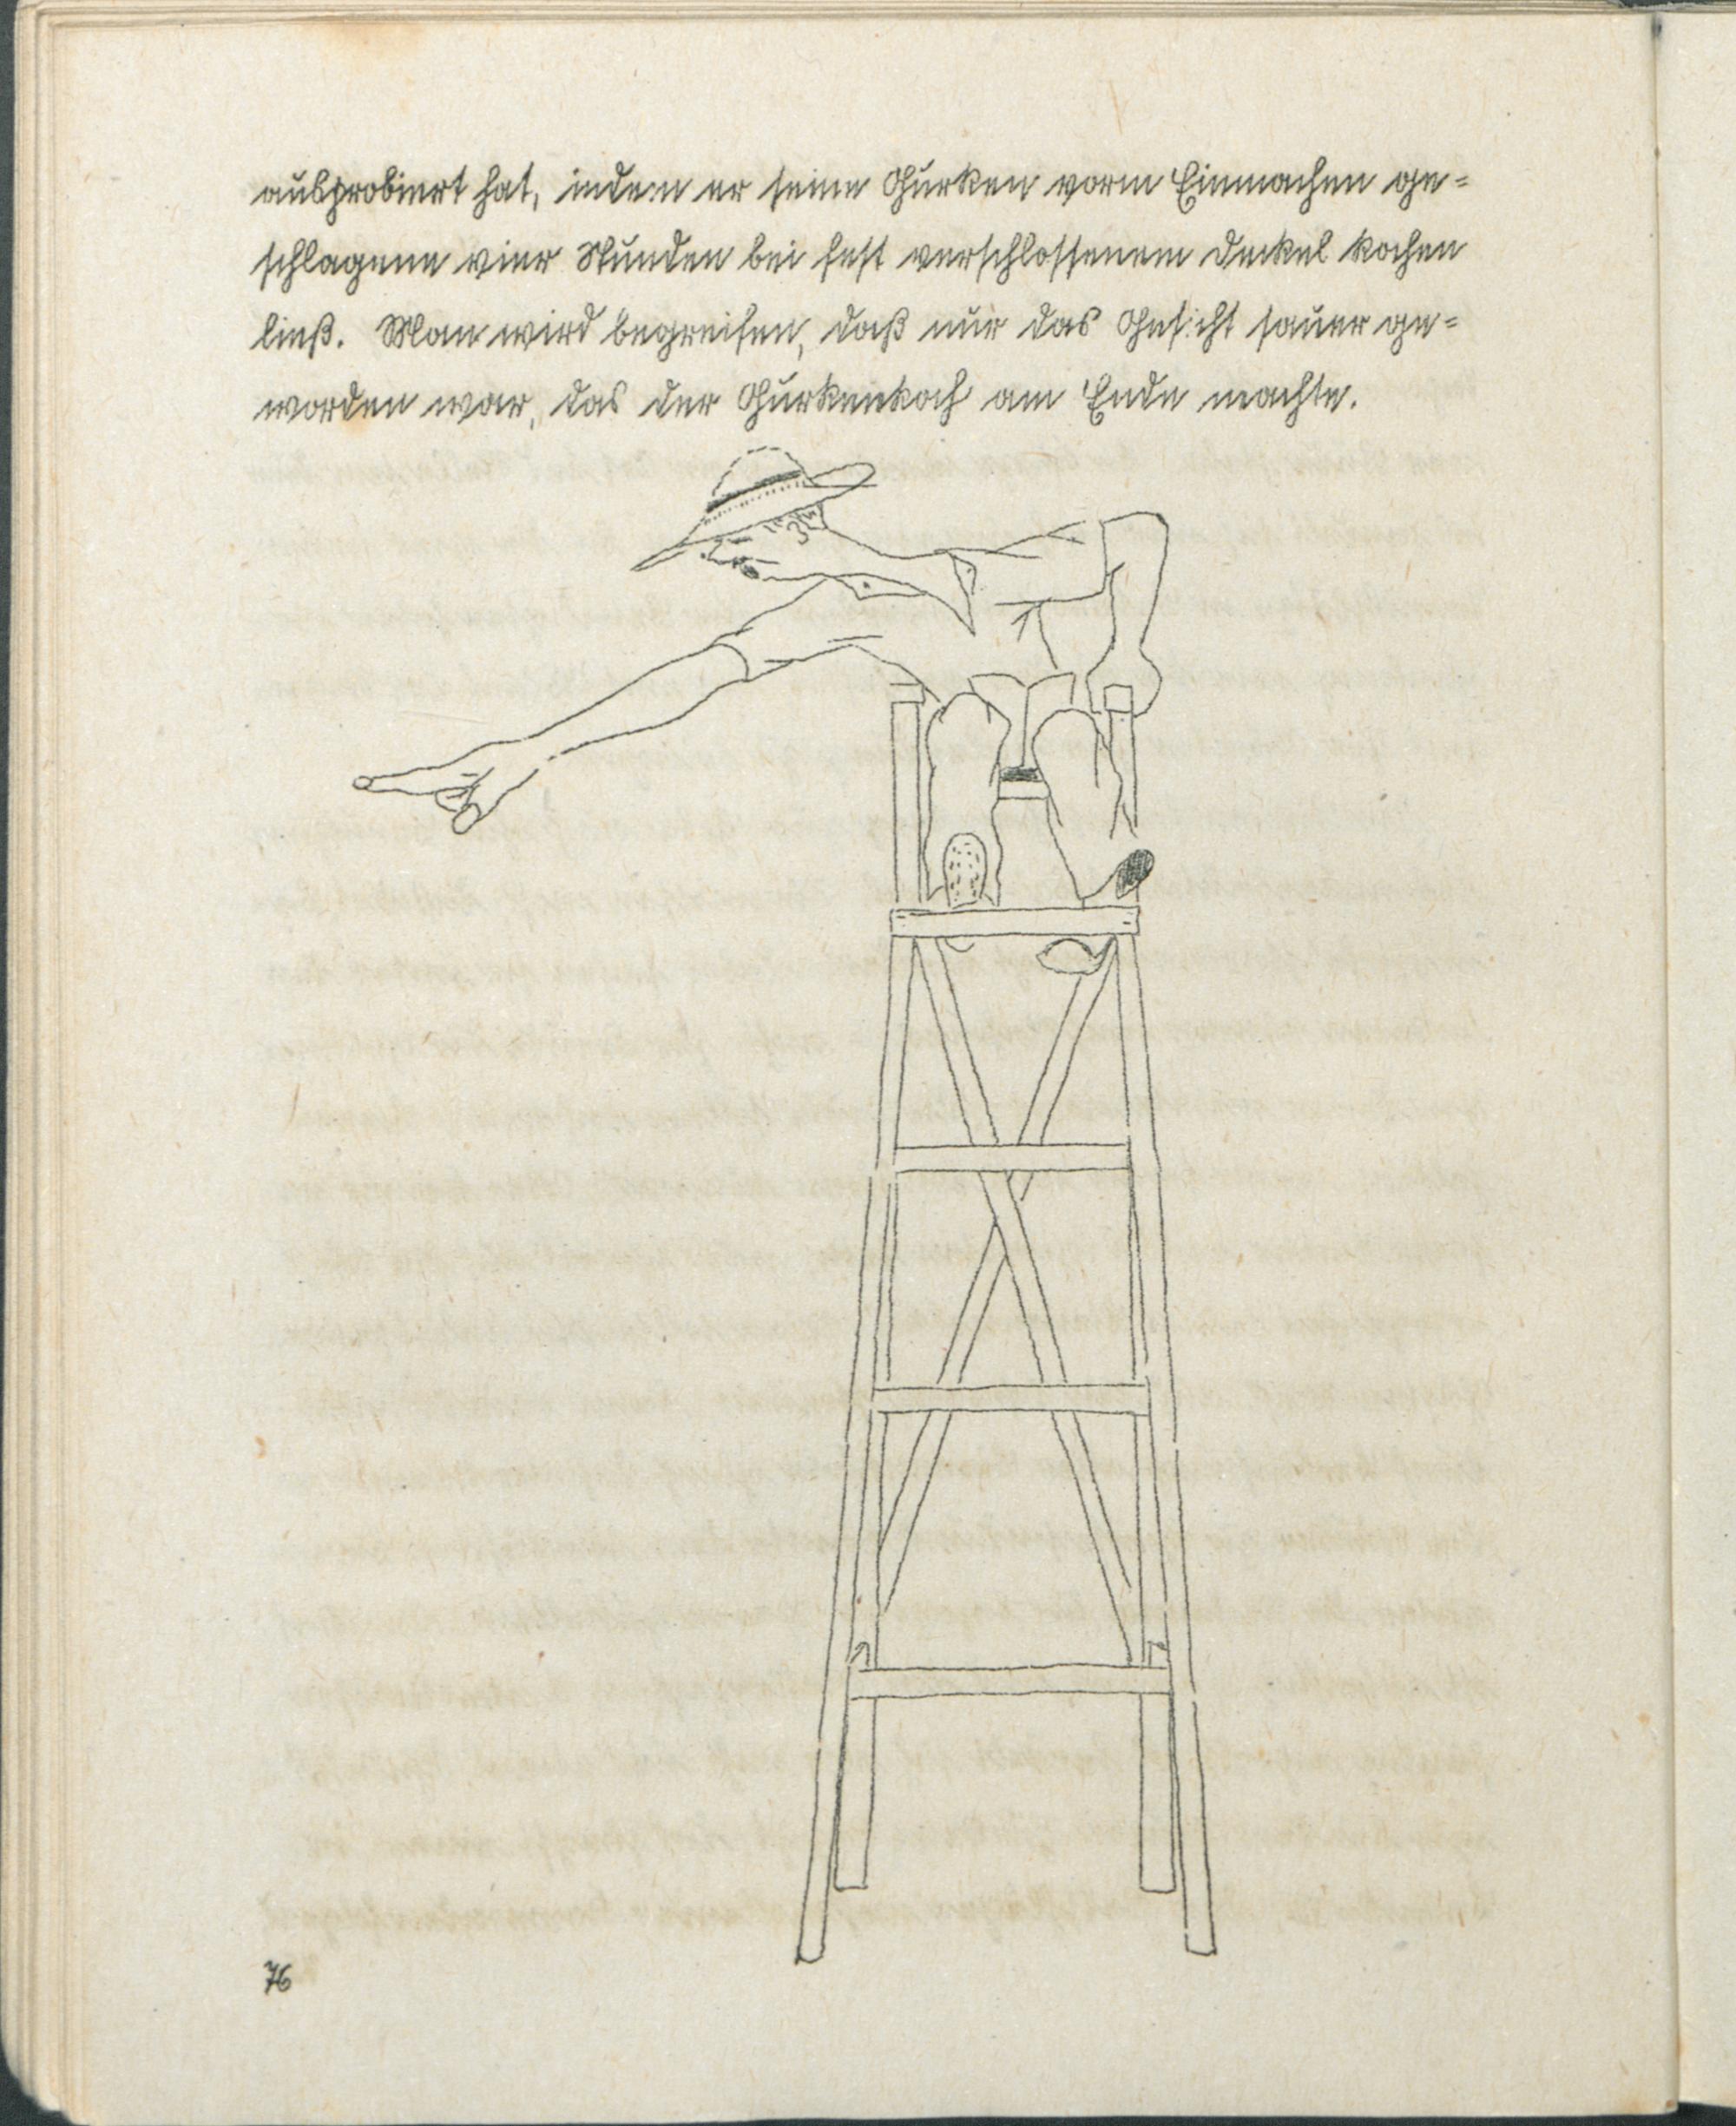 ausprobiert hat, indem er seine Gurken vorm Einmachen ge=
schlagene vier Stunden bei fest verschlossenem Deckel kochen
ließ. Man wird begreifen, daß nur das Gesicht sauer ge=
worden war, das der Gurkenkoch am Ende machte.
76